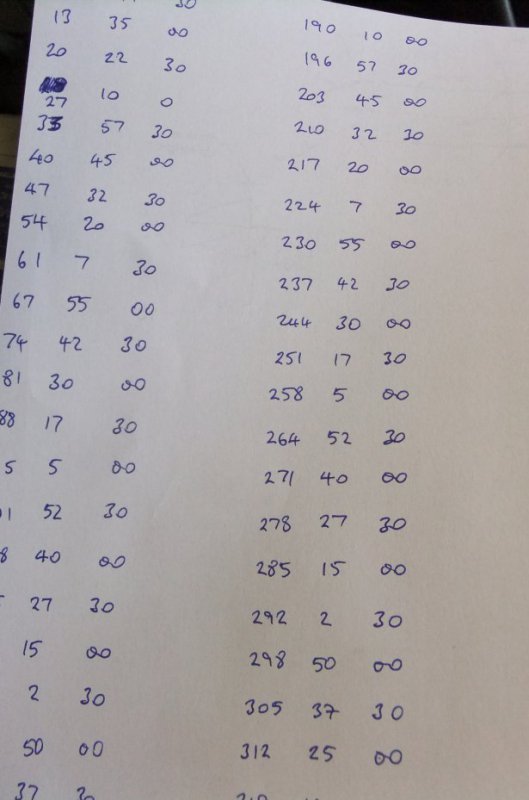 30
13 35 00
20 22 30
27 10 0
33 57 30
40 45 00
47 32 30
54 20 00
61 7 30
67 55 00
74 42 30
81 30 00
88 17 30
5 5 00
1 52 30
8 40 00
27 30
15 00
2 30
50 00
37 30
190 10 00
196 57 30
203 45 00
210 32 30
217 20 00
224 7 30
230 55 00
237 42 30
244 30 00
251 17 30
258 5 00
264 52 30
271 40 00
278 27 30
285 15 00
292 2 30
298 50 00
305 37 30
312 25 00